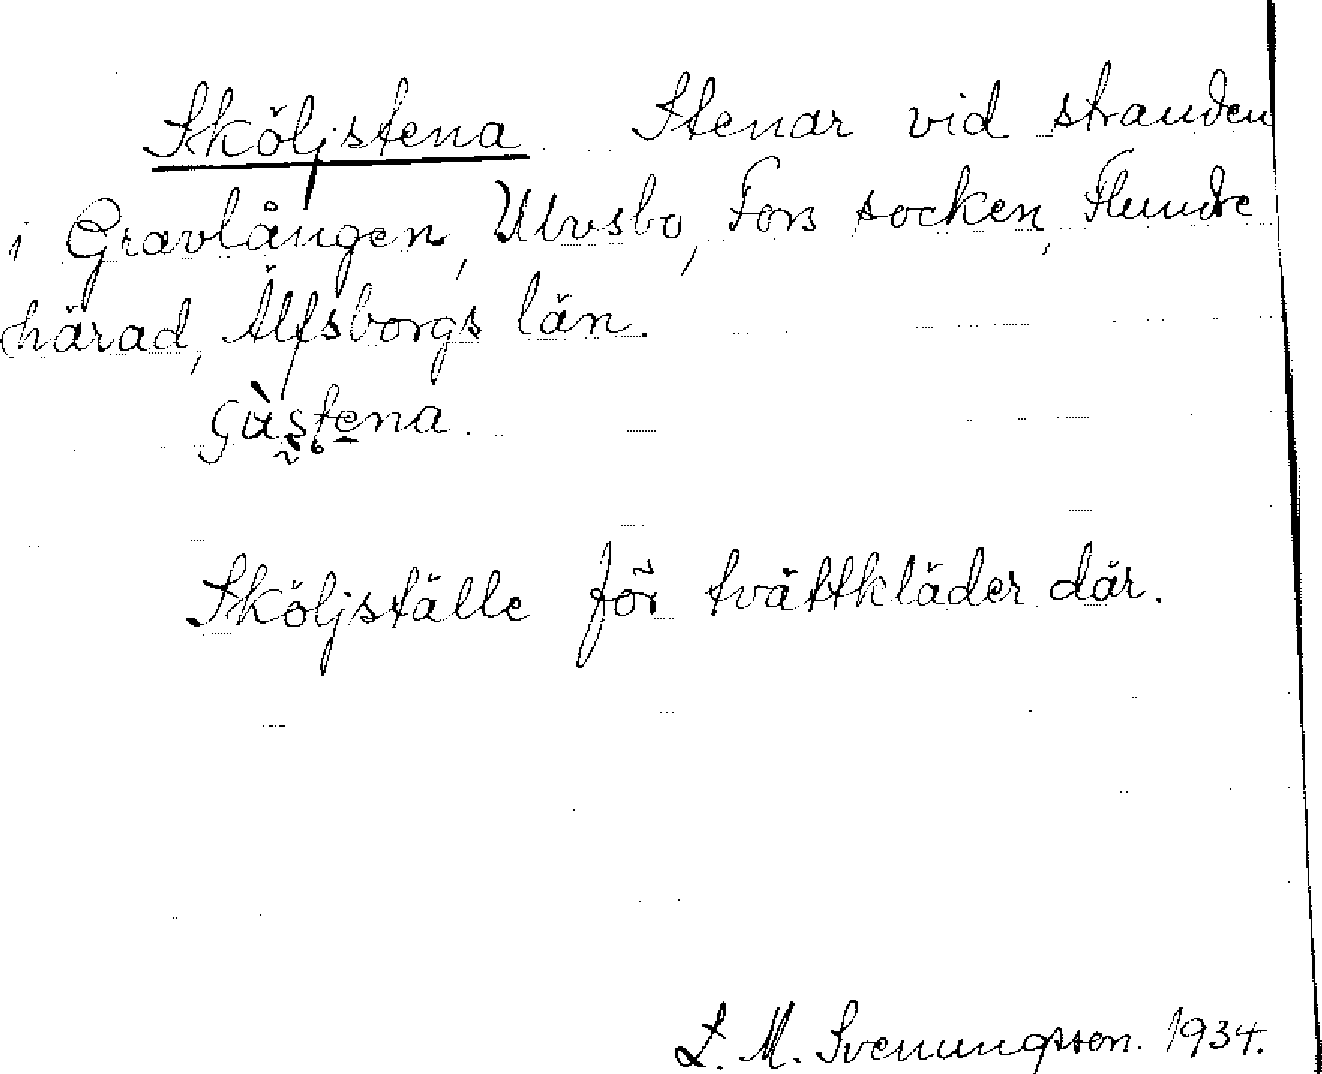 Sköljstena Stenar vid stranden
i Gravlången, Ulvsbo, Fors socken, Flundre
härad, Älfsborgs län.
Sköljställe för tvättkläder där.
L. M. Svenungsson. 1934.